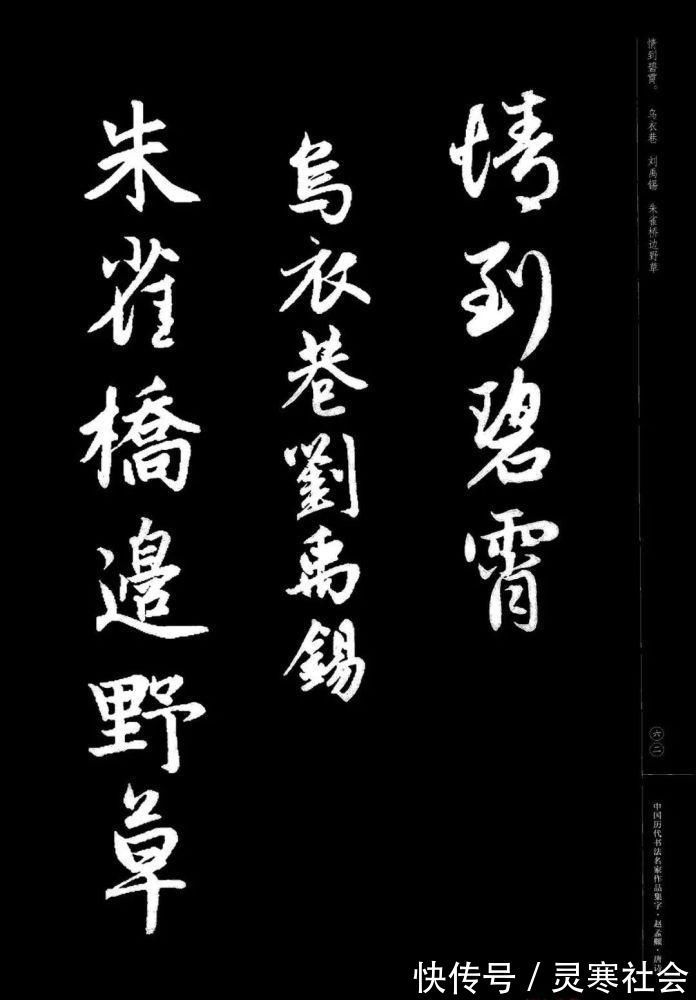 情到碧霄
烏衣巷劉禹錫
朱雀橋邊野草
情到碧霄。 乌衣巷 刘禹锡 朱雀桥边野草
六二
中国历代书法名家作品集字·赵孟頫·唐诗
快传号／灵寒社会